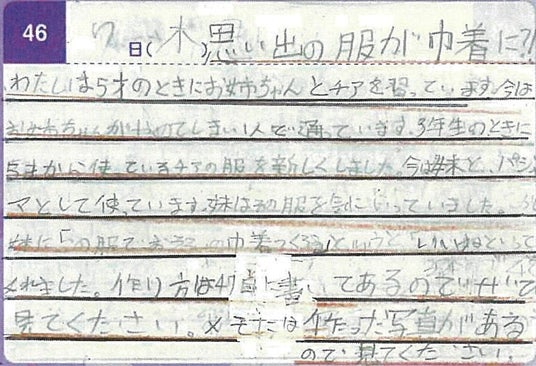 46
7日(木)思い出の服が巾着に?!
わたしは5才のときにお姉ちゃんとチアを習っています。今は
お姉ちゃんがやめてしまい1人で通っています。3年生のときに
5才から使っているチアの服を新しくしました。今は妹と、パジ
マとして使っています。妹はその服を気にいっていました。
妹に「この服で の巾着つくる」というと「いいねといって
くれました。作り方は47 に書いてあるのでぜひ
見てください。 作った写真がある
ので見てください。